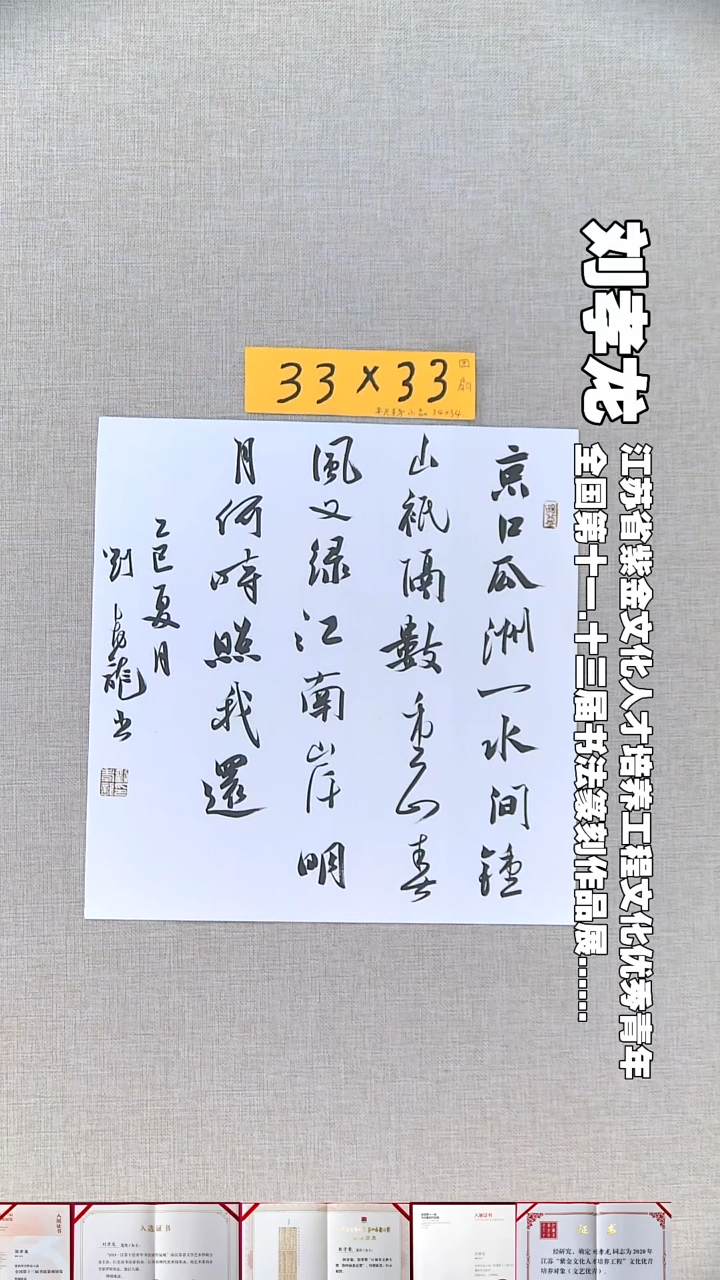 33×33
京口瓜洲一水間鍾
山祇隔數重山春
風又绿江南岸明
月何時照我還
乙巳夏月
劉孝龍书
刘孝龙
江苏省紫金文化人才培养工程文化优秀青年
全国第十一.十三届书法篆刻作品展......
入选证书
入选证书
入展证书
证书
经研究，确定刘孝龙同志为2020年
江苏“紫金文化人才培养工程”文化优青
培养对象（文艺优青）.